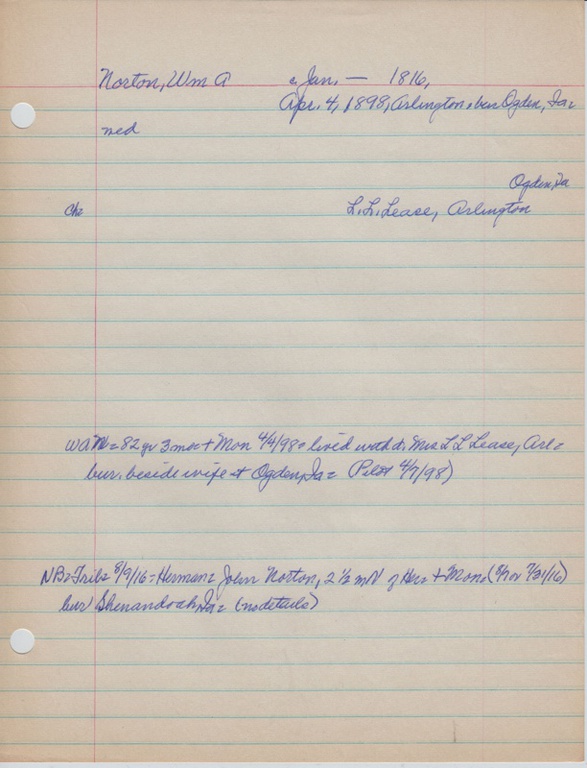 Norton, Wm A c. Jan. — 1816,
Apr. 4, 1898, Arlington, bur Ogden, Ia.
med
Ogden, Ia
Ch: L. L. Lease, Arlington
WAN = 82 yr 3 mos + Mon 4/4/98 = lived with d. Mrs L L Lease, Arl =
bur. beside wife at Ogden, Ia = (Pilot 4/7/98)
NB = Trib = 8/9/16 = Herman = John Norton, 2 1/2 m N of Her = + Mon. (8/7 or 7/31/16)
bur Shenandoah, Ia = (no details)